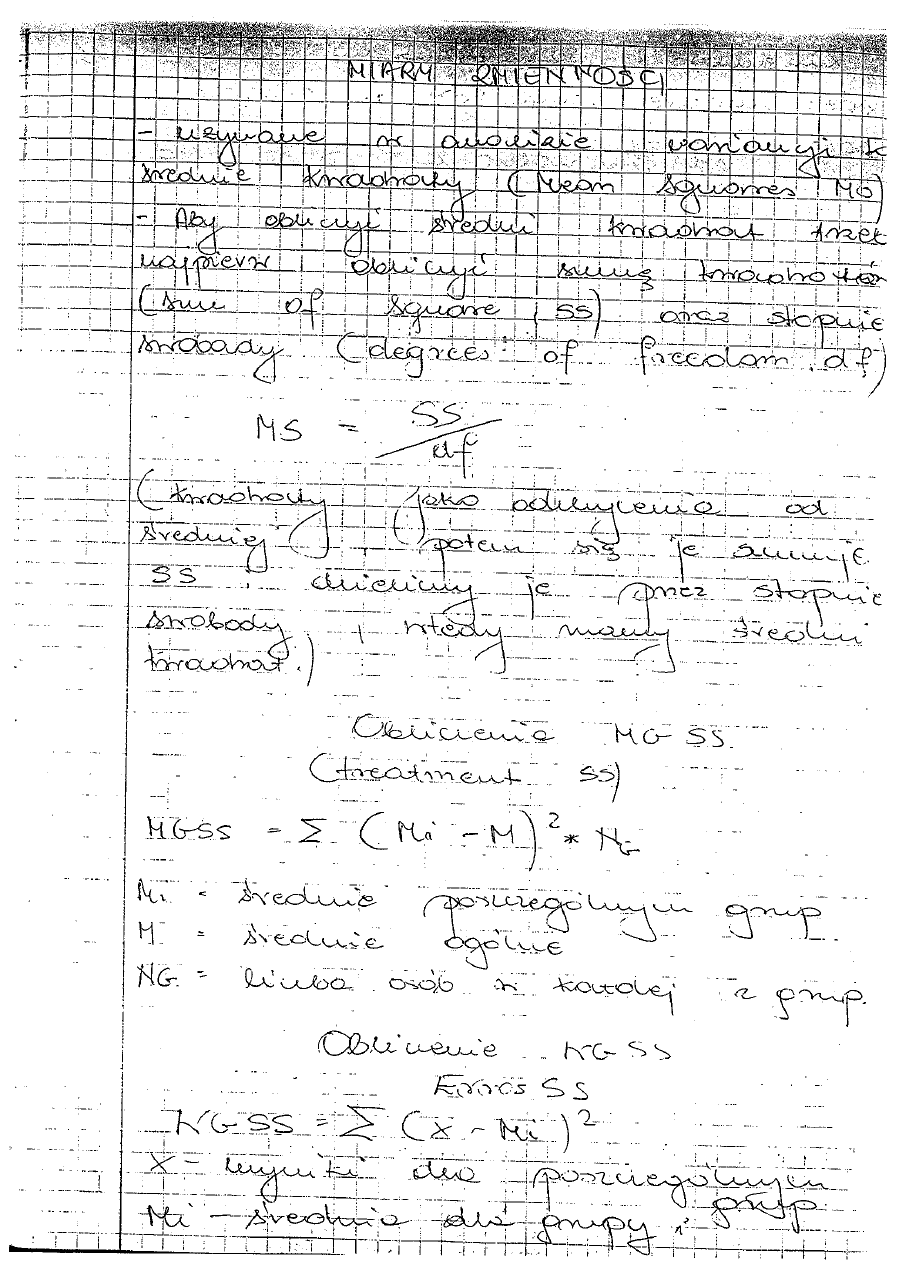 MIARY ZMIENNOŚCI
- używane w analizie wariancji
średnie kwadraty (Mean squares, MS)
- Aby obliczyć średni kwadrat trzeb
najpierw obliczyć sumę kwadratów
(sum of square, SS) oraz stopnie
swobody (degrees of freedom, df)
MS = SS/df
(kwadraty jako odchylenia od
średniej, potem się je sumuje
SS, dzielimy je przez stopnie
swobody, wtedy mamy średni
kwadrat.)
Obliczenie MGSS
(treatment SS)
MGSS = Σ (Mi - M)² * NG
Mi = średnie poszczególnych grup
M = średnie ogólne
NG = liczba osób w każdej z grup.
Obliczenie WGSS
Error SS
WGSS = Σ (X - Mi)²
X - wyniki dla poszczególnych
grup
Mi - średnia dla grupy i